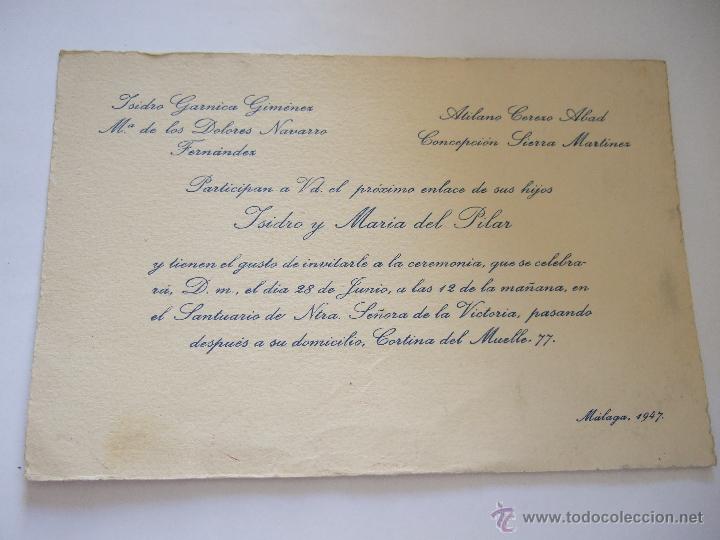 Isidro Garnica Giménez
Mª de los Dolores Navarro
Fernández
Atilano Cerezo Abad
Concepción Sierra Martínez
Participan a Vd. el próximo enlace de sus hijos
Isidro y María del Pilar
y tienen el gusto de invitarle a la ceremonia, que se celebra-
rá, D. m., el día 28 de Junio, a las 12 de la mañana, en
el Santuario de Ntra. Señora de la Victoria, pasando
después a su domicilio, Cortina del Muelle, 77.
Málaga, 1947.
www.todocoleccion.net